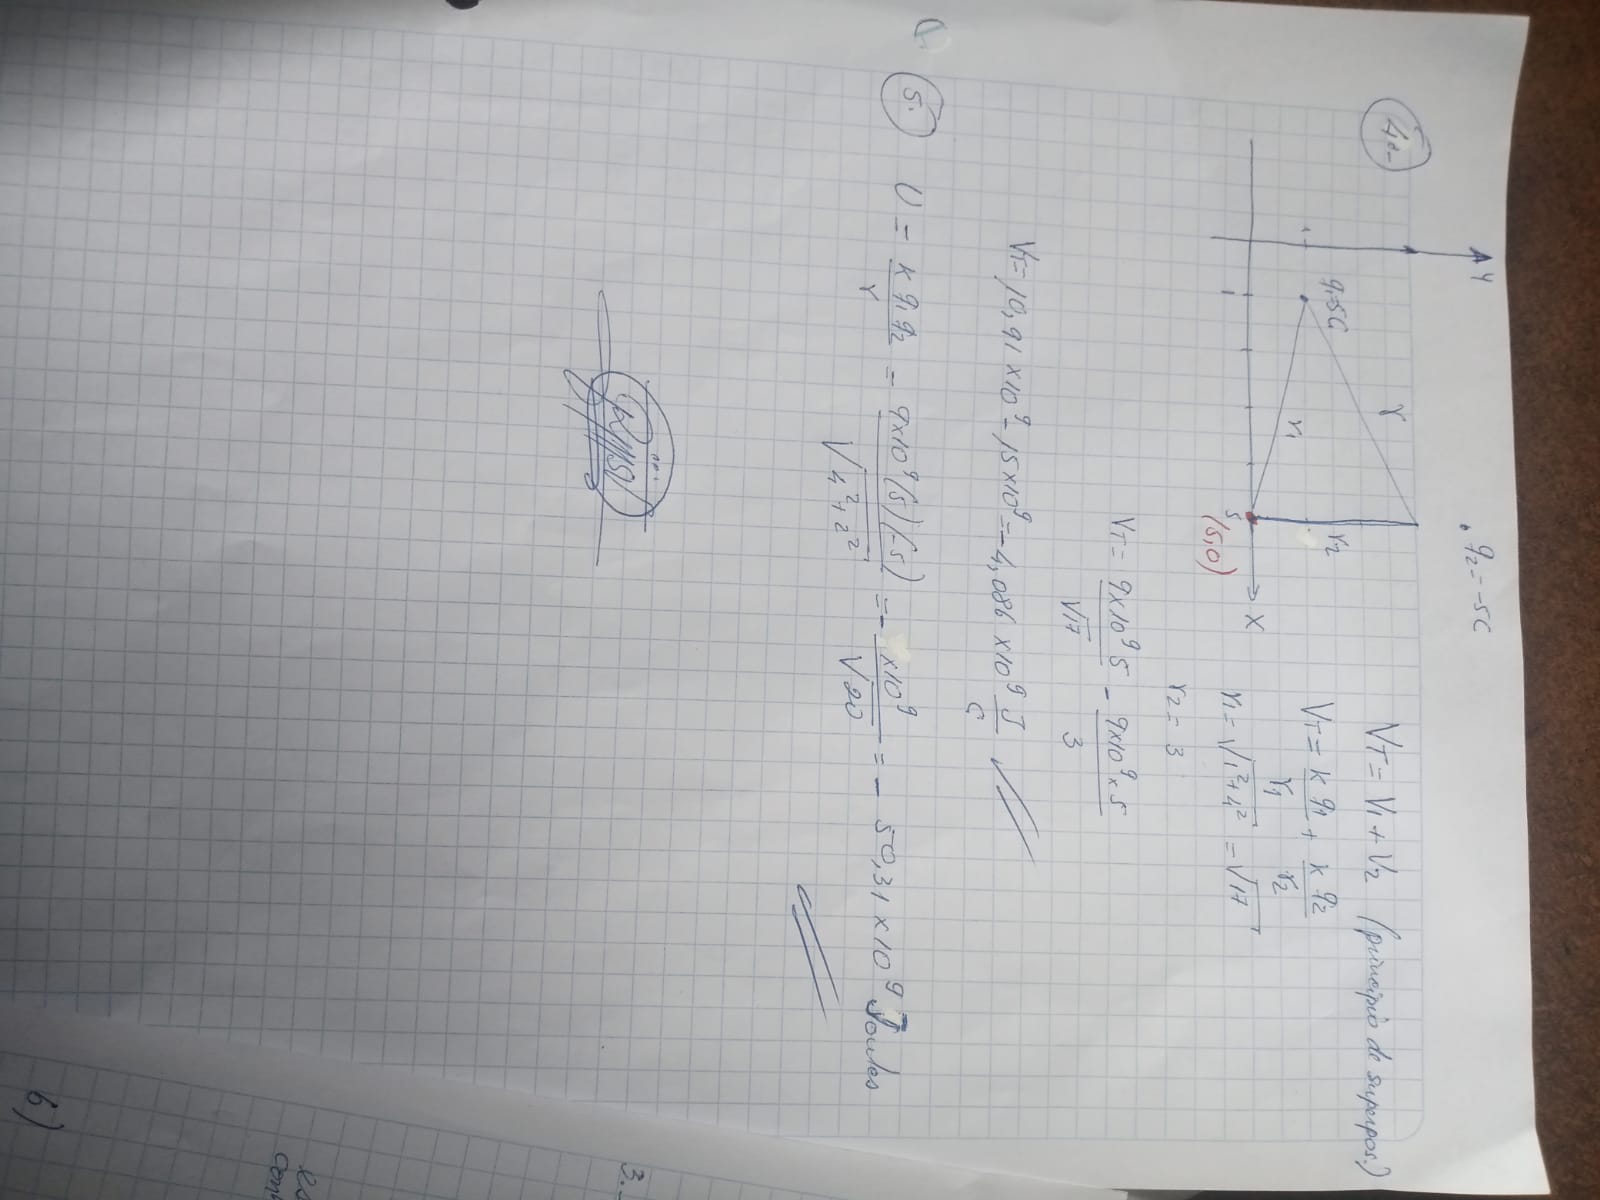 4.-
Y
q₁=5C
q₂=-5C
r
r₁
r₂
1
1
5
X
(5,0)
V_T = V₁ + V₂ (principio de superpos.)
V_T = k q₁/r₁ + k q₂/r₂
r₁ = √(1²+4²) = √17
r₂ = 3
V_T = 9x10⁹ 5/√17 - 9x10⁹ x 5/3
V_T = 10,91 x10⁹ - 15x10⁹ = -4,086 x10⁹ J/C
5.
U = k q₁q₂/r = 9x10⁹(5)(-5)/√(4²+2²) = - x10⁹/√20 = - 50,31 x 10⁹ Joules
3.-
b)